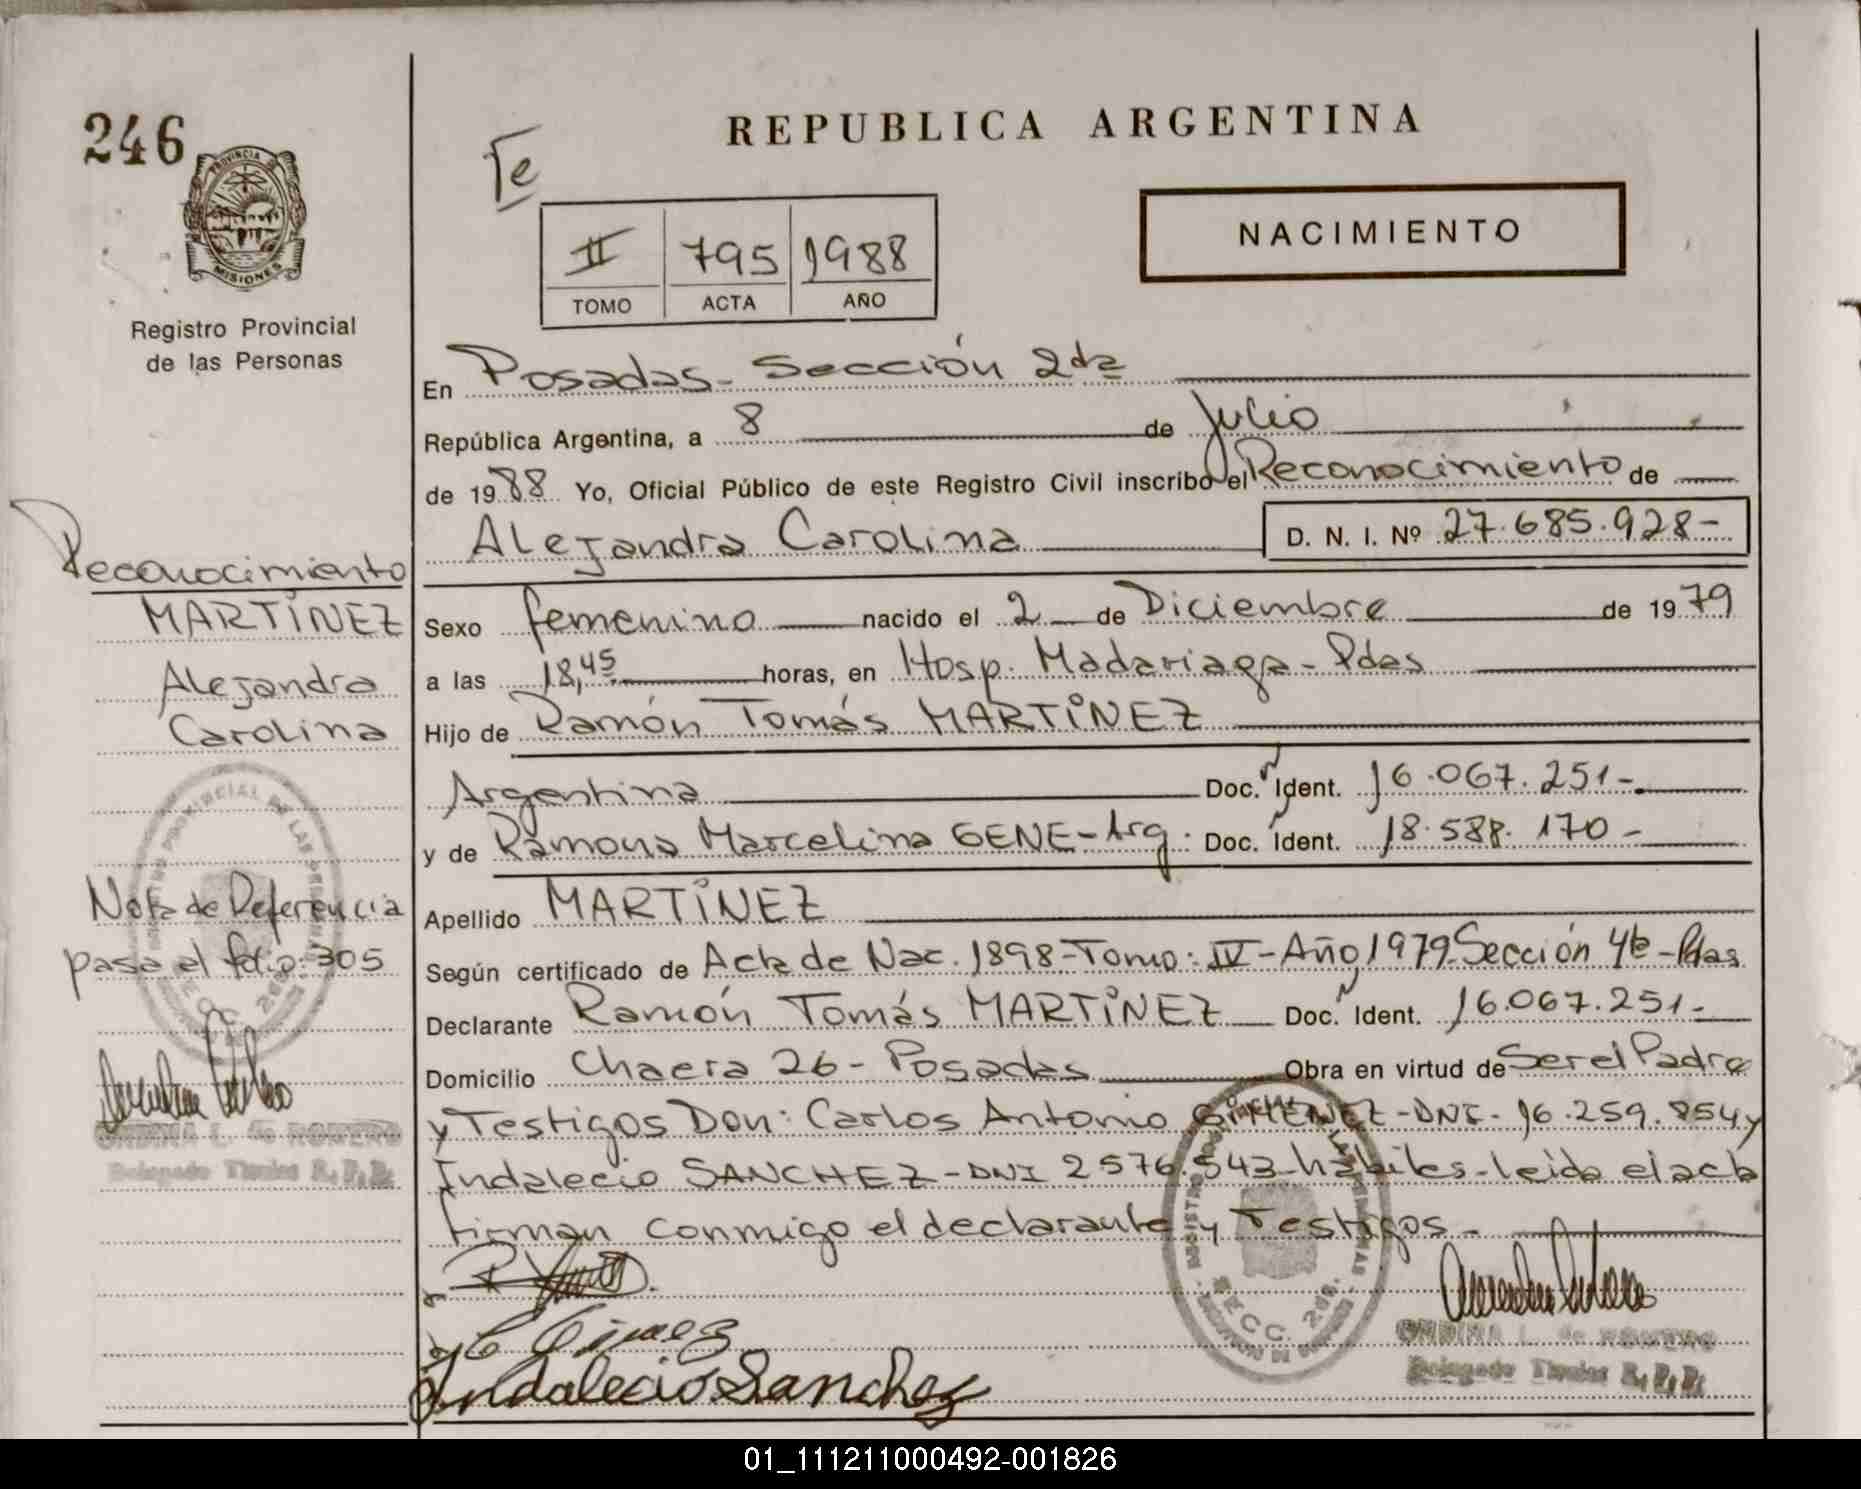 246
PROVINCIA DE
MISIONES
Registro Provincial
de las Personas
REPUBLICA ARGENTINA
Te
NACIMIENTO
II 795 1988
TOMO ACTA AÑO
En Posadas - Sección 2da
República Argentina, a 8 de Julio
de 1988 Yo, Oficial Público de este Registro Civil inscribo el Reconocimiento de
Alejandra Carolina D. N. I. Nº 27.685.928-
Sexo femenino nacido el 2 de Diciembre de 1979
a las 18,45 horas, en Hosp. Madariaga - Pdas
Hijo de Ramón Tomás MARTÍNEZ
Argentina Doc. Ident. 16.067.251-
y de Ramona Marcelina GENE - Arg. Doc. Ident. 18.588.170-
Apellido MARTÍNEZ
Según certificado de Acta de Nac. 1898 - Tomo: IV - Año 1979 - Sección 4ta - Pdas
Declarante Ramón Tomás MARTÍNEZ Doc. Ident. 16.067.251-
Domicilio Chacra 26 - Posadas Obra en virtud de Ser el Padre
y Testigos Don: Carlos Antonio GIMENEZ - DNI - 16.259.854 y
Indalecio SANCHEZ - DNI 2576.543 - hábiles - leída el acta
firman conmigo el declarante y Testigos -
Indalecio Sanchez
SECC. 2da.
ONDINA L. de ROMERO
Delegado Titular R.P.P.
Reconocimiento
MARTÍNEZ
Alejandra
Carolina
Nota de Referencia
pasa al folio: 305
SECC. 2da.
ONDINA L. de ROMERO
Delegado Titular R.P.P.
01_111211000492-001826